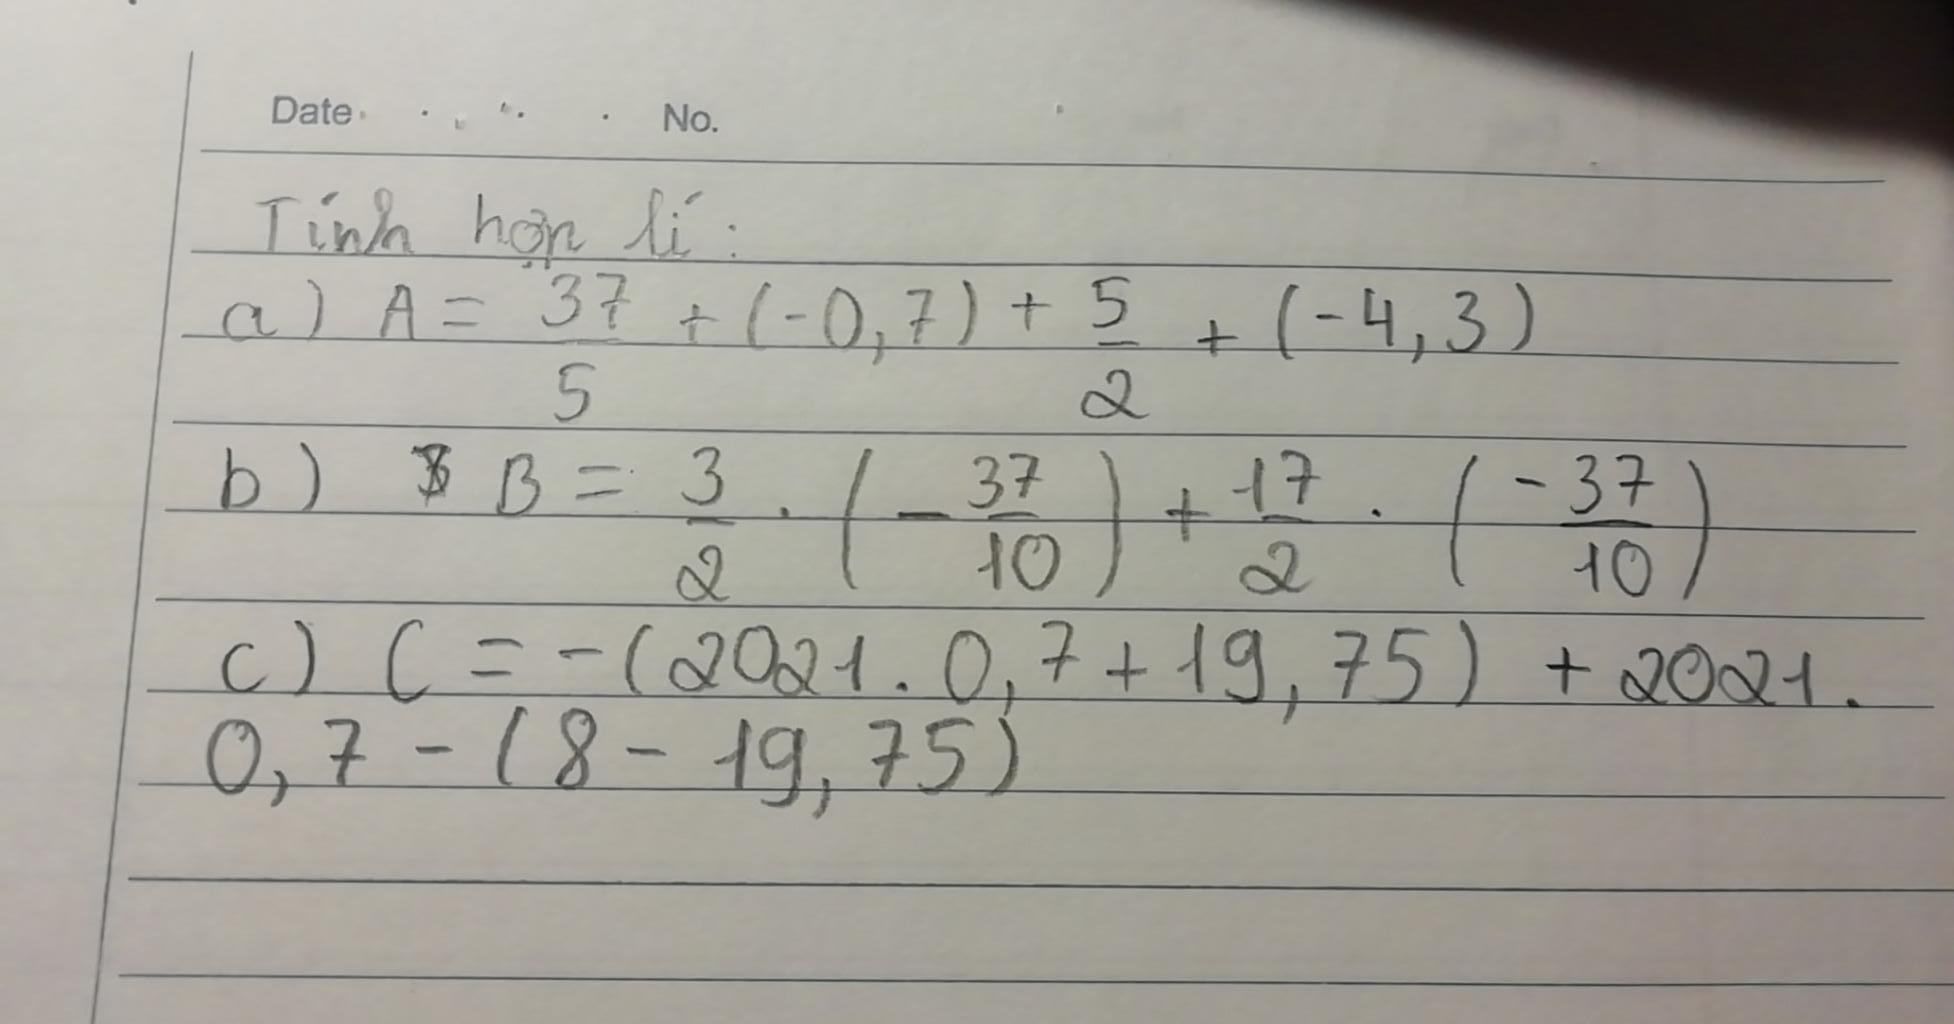 Date No.
Tính hợp lí:
a) A = 37/5 + (-0,7) + 5/2 + (-4,3)
b) B = 3/2 . (-37/10) + 17/2 . (-37/10)
c) C = -(2021. 0,7 + 19,75) + 2021.
0,7 - (8 - 19,75)